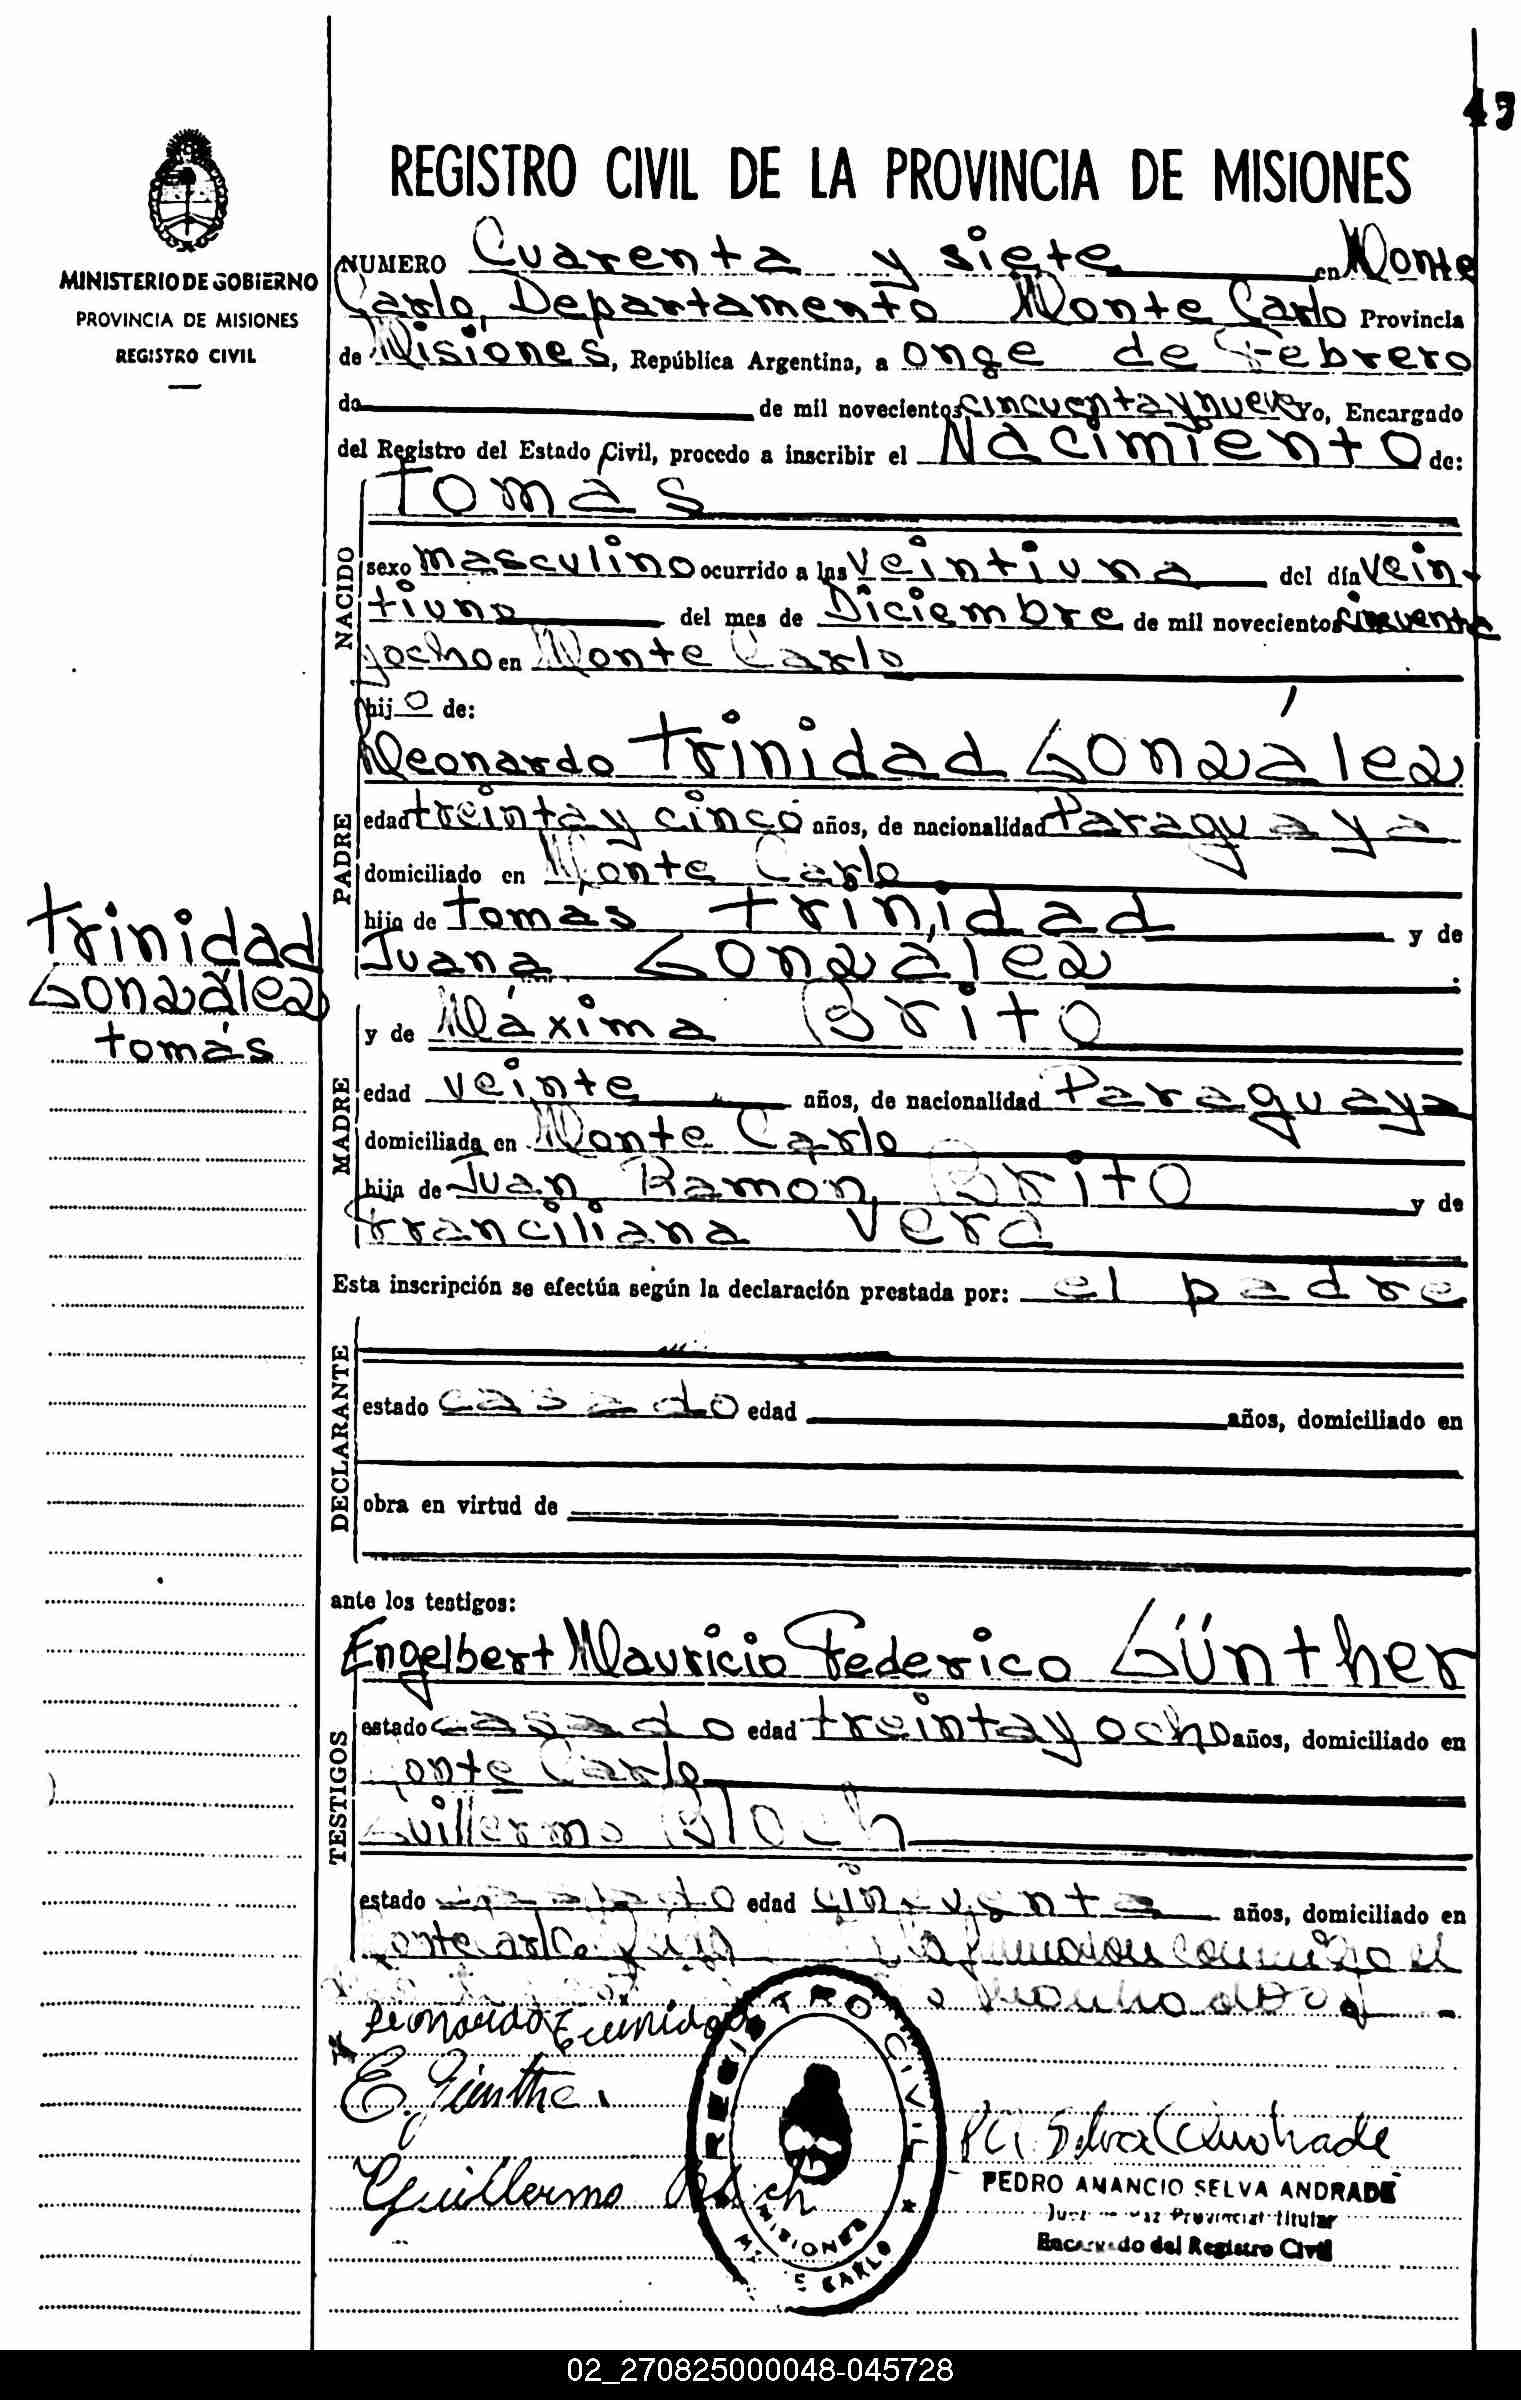 45
REGISTRO CIVIL DE LA PROVINCIA DE MISIONES
MINISTERIO DE GOBIERNO
PROVINCIA DE MISIONES
REGISTRO CIVIL
NUMERO Cuarenta y siete en Monte
Carlo, Departamento Monte Carlo Provincia
de Misiones, República Argentina, a onze de Febrero
de de mil novecientos cincuenta y nueve Yo, Encargado
del Registro del Estado Civil, procedo a inscribir el Nacimiento de:
Tomás
NACIDO
sexo masculino ocurrido a las veintiuna del día vein
tiuno del mes de Diciembre de mil novecientos cincuenta
y ocho en Monte Carlo
hijo de:
PADRE
Leonardo Trinidad González
edad treinta y cinco años, de nacionalidad Paraguaya
domiciliado en Monte Carlo
hijo de Tomás Trinidad y de
Juana González
Trinidad
González
Tomás
MADRE
y de Máxima Brito
edad veinte años, de nacionalidad Paraguaya
domiciliada en Monte Carlo
hija de Juan Ramón Brito y de
Franciliana Vera
Esta inscripción se efectúa según la declaración prestada por: el padre
DECLARANTE
estado casado edad años, domiciliado en
obra en virtud de
ante los testigos:
TESTIGOS
Engelbert Mauricio Federico Günther
estado casado edad treinta y ocho años, domiciliado en
Monte Carlo
Guillermo Bloch
estado casado edad cincuenta años, domiciliado en
Monte Carlo la conmigo el
Leonardo Trinidad
E. Günther
Guillermo Bloch
REGISTRO CIVIL
MISIONES
MONTE CARLO
P A Selva Andrade
PEDRO AMANCIO SELVA ANDRADE
Juez de Paz Provincial Titular
Encargado del Registro Civil
02_270825000048-045728